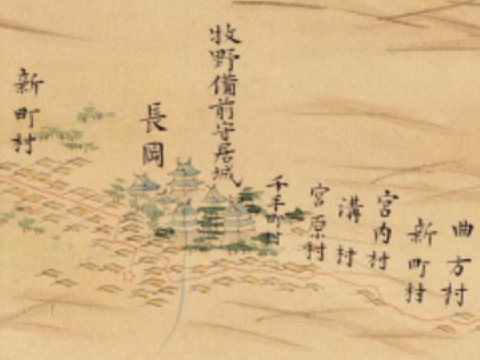 曲方村
新町村
宮内村
溝村
宮原村
千手町村
牧野備前守居城
長岡
新町村